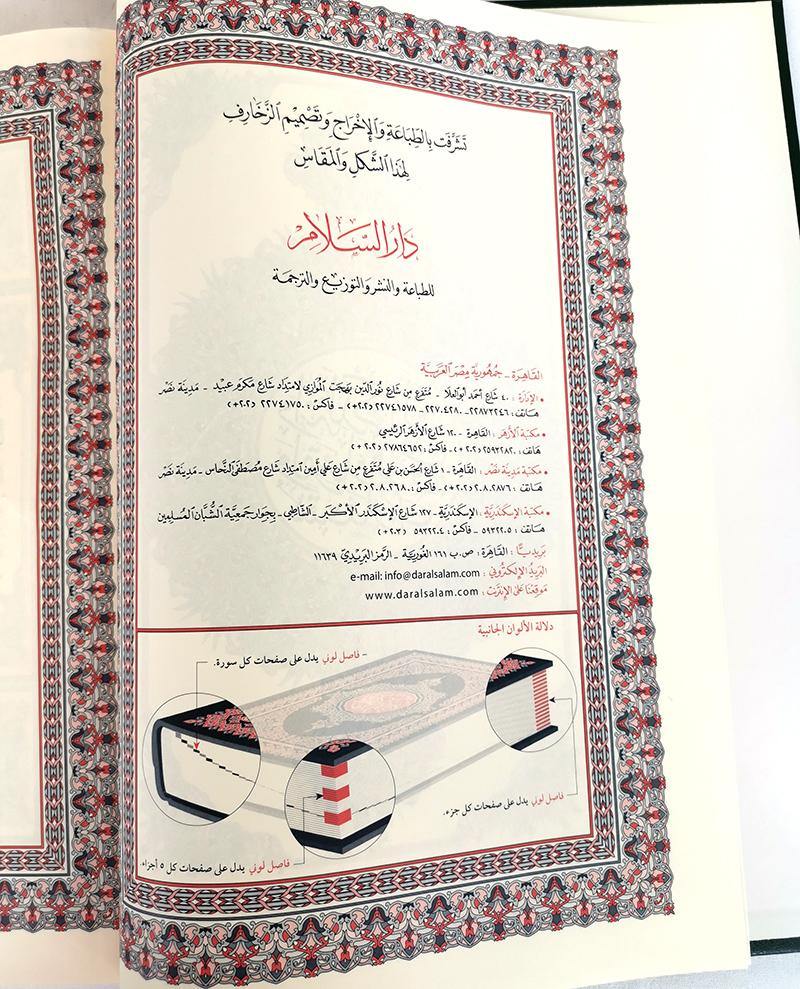 تَشَرَّفَت بِالطِّبَاعَةِ وَالْإِخْرَاجِ وَتَصْمِيمِ الزَّخَارِفِ
لِهَذَا الشَّكْلِ وَالْمَقَاسِ
دَارُ السَّلَامِ
للطباعة والنشر والتوزيع والترجمة
القاهرة - جمهورية مصر العربية
• الإدارة : ٤٠ شارع أحمد أبو العلا - متفرع من شارع نور الدين بهجت الموازي لامتداد شارع مكرم عبيد - مدينة نصر
هاتف : ٢٢٨٧٣٢٤٦ - ٢٢٧٠٤٢٨٠ - ٢٢٧٤١٥٧٨ (٢٠٢+) - فاكس : ٢٢٧٤١٧٥٠ (٢٠٢+)
• مكتبة الأزهر : القاهرة - ١٢٠ شارع الأزهر الرئيسي
هاتف : ٢٥٩٣٢٨٢٠ (٢٠٢+) - فاكس : ٢٧٨٦٤٦٥٢ (٢٠٢+)
• مكتبة مدينة نصر : القاهرة - ١ شارع الحسن بن علي متفرع من شارع علي أمين امتداد شارع مصطفى النحاس - مدينة نصر
هاتف : ٢٠٨٠٢٨٧٦ (٢٠٢+) - فاكس : ٢٠٨٠٢٦٨٠ (٢٠٢+)
• مكتبة الإسكندرية : الإسكندرية - ١٢٧ شارع الإسكندر الأكبر - الشاطبي - بجوار جمعية الشبان المسلمين
هاتف : ٥٩٣٢٢٠٥ - فاكس : ٥٩٣٢٢٠٤ (٢٠٣+)
بريديًا : القاهرة : ص.ب ١٦١ الغورية - الرمز البريدي ١١٦٣٩
البريد الإلكتروني : e-mail: info@daralsalam.com
موقعنا على الإنترنت : www.daralsalam.com
دلالة الألوان الجانبية
- فاصل لوني يدل على صفحات كل سورة.
فاصل لوني يدل على صفحات كل جزء.
فاصل لوني يدل على صفحات كل ٥ أجزاء.